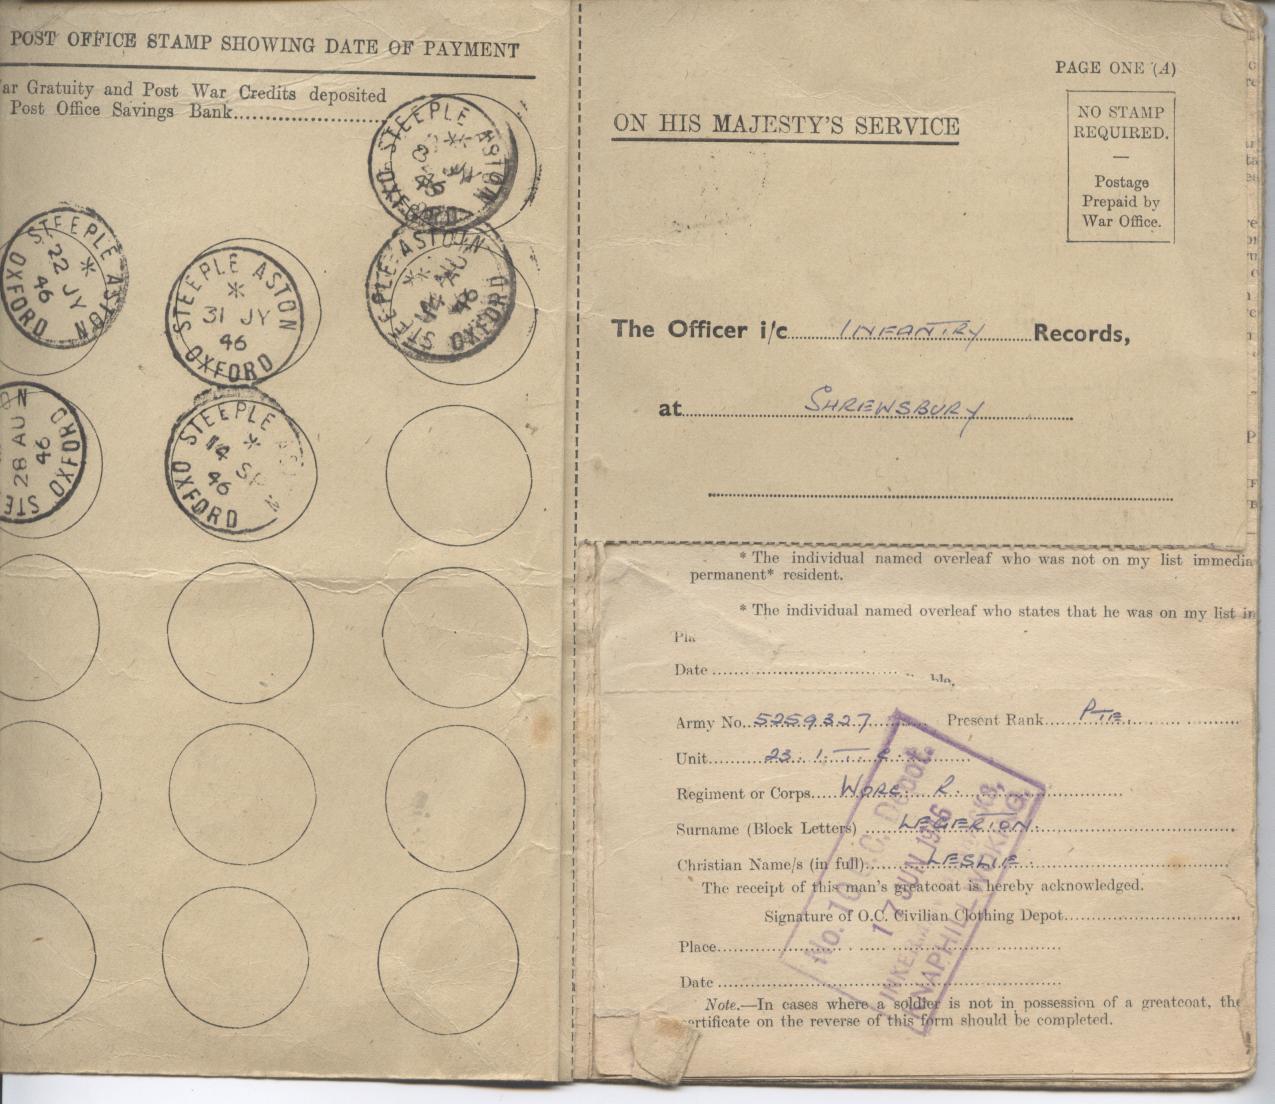 POST OFFICE STAMP SHOWING DATE OF PAYMENT
ar Gratuity and Post War Credits deposited
Post Office Savings Bank
STEEPLE ASTON
46
OXFORD
STEEPLE ASTON
22 JY
46
OXFORD
STEEPLE ASTON
31 JY
46
OXFORD
STEEPLE ASTON
14 AU
46
OXFORD
28 AU
46
OXFORD
STEEPLE
14 SP
46
OXFORD
PAGE ONE (A)
NO STAMP
REQUIRED.
—
Postage
Prepaid by
War Office.
ON HIS MAJESTY'S SERVICE
The Officer i/c INFANTRY Records,
at SHREWSBURY
* The individual named overleaf who was not on my list immedia
permanent* resident.
* The individual named overleaf who states that he was on my list in
Pla
Date
Army No. 5259327 Present Rank PTE.
Unit 23.
Regiment or Corps WORC. R.
Surname (Block Letters) LEGERTON.
Christian Name/s (in full) LESLIE.
The receipt of this man's greatcoat is hereby acknowledged.
Signature of O.C. Civilian Clothing Depot
Place
Date
Note.—In cases where a soldier is not in possession of a greatcoat, the
ertificate on the reverse of this form should be completed.
No. 10 C.C. Depot.
17 JUN 1946
KNAPHILL, WOKING.